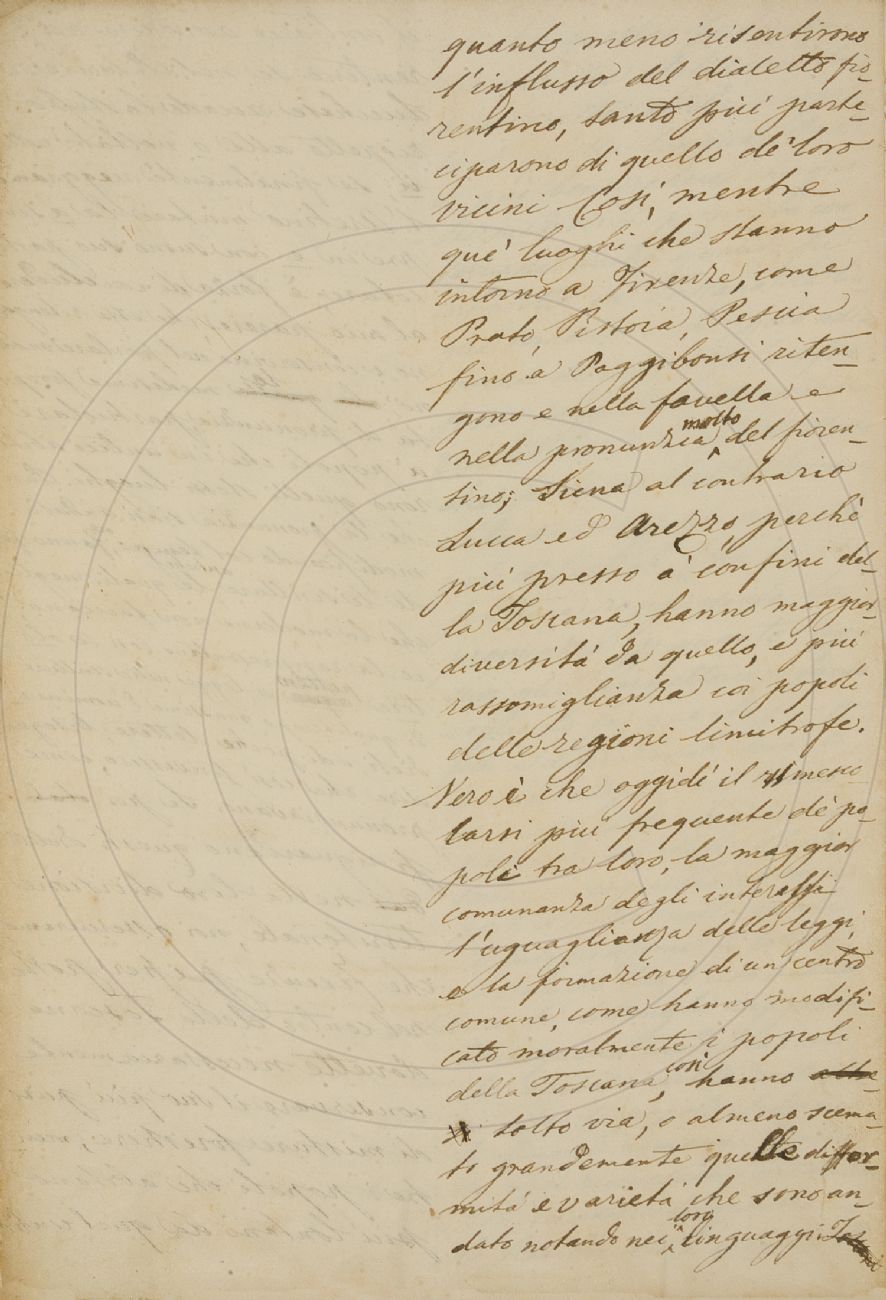 quanto meno risentirono
l'influsso del dialetto fio-
rentino, tanto piú parte-
ciparono di quello de' loro
vicini Cosí, mentre
que' luoghi che stanno
intorno a Firenze, come
Prato, Pistoia, Pescia
fino a Poggibonsi riten-
gono e nella favella e
nella pronunzia molto del fioren-
tino; Siena al contrario
Lucca ed Arezzo, perchè
piú presso a' confini del-
la Toscana, hanno maggior
diversitá da quello, e piú
rassomiglianza coi popoli
delle regioni limitrofe.
Vero è che oggidí il mesco-
larsi piú frequente de' po-
poli tra loro, la maggior
comunanza degli interessi
l'uguaglianza delle leggi,
e la formazione di un centro
comune, come hanno modifi-
cato moralmente i popoli
della Toscana, cosí hanno
tolto via, o almeno scema-
to grandemente quelle diffor-
mitá e varietá che sono an-
dato notando nei loro linguaggi